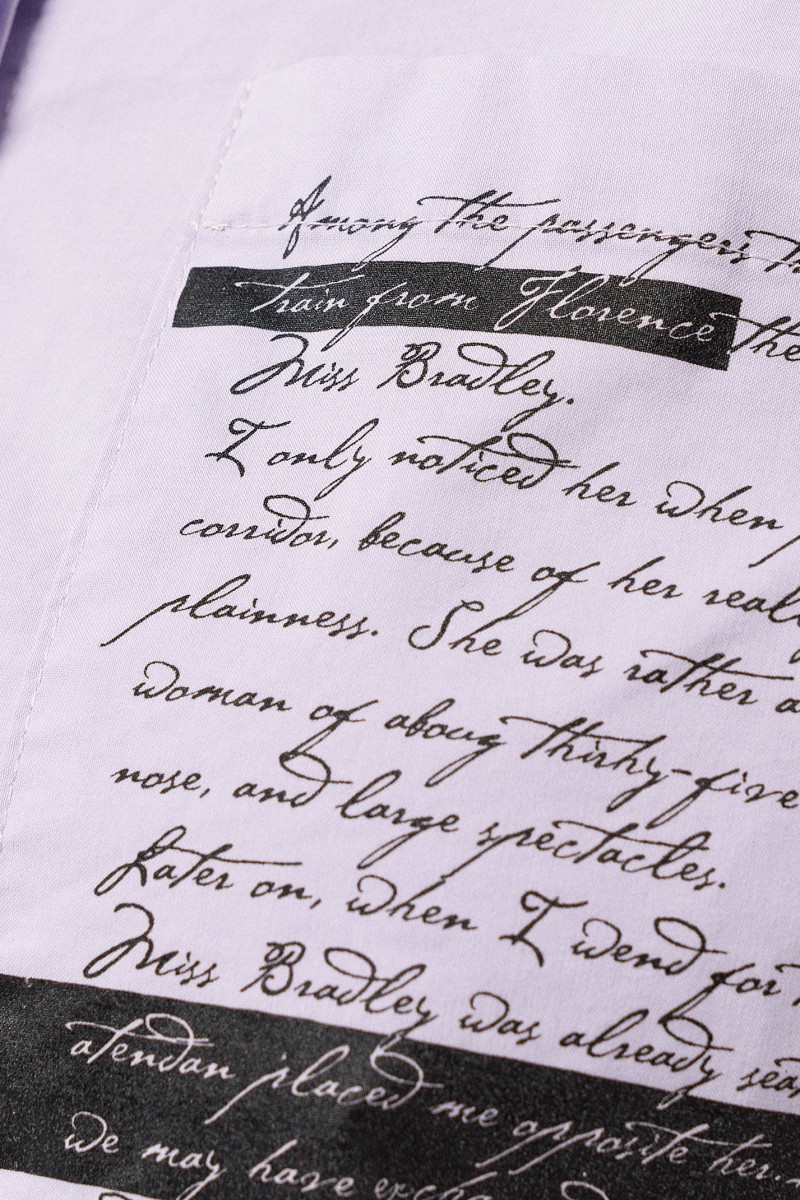 Among the passengers
train from Florence the
Miss Bradley.
I only noticed her when
corridor, because of her
plainness. She was rather
woman of aboug thirhy-five
nose, and large spectacles.
Later on, when I wend for
Miss Bradley was already
atendan placed me opposite her.
we may have